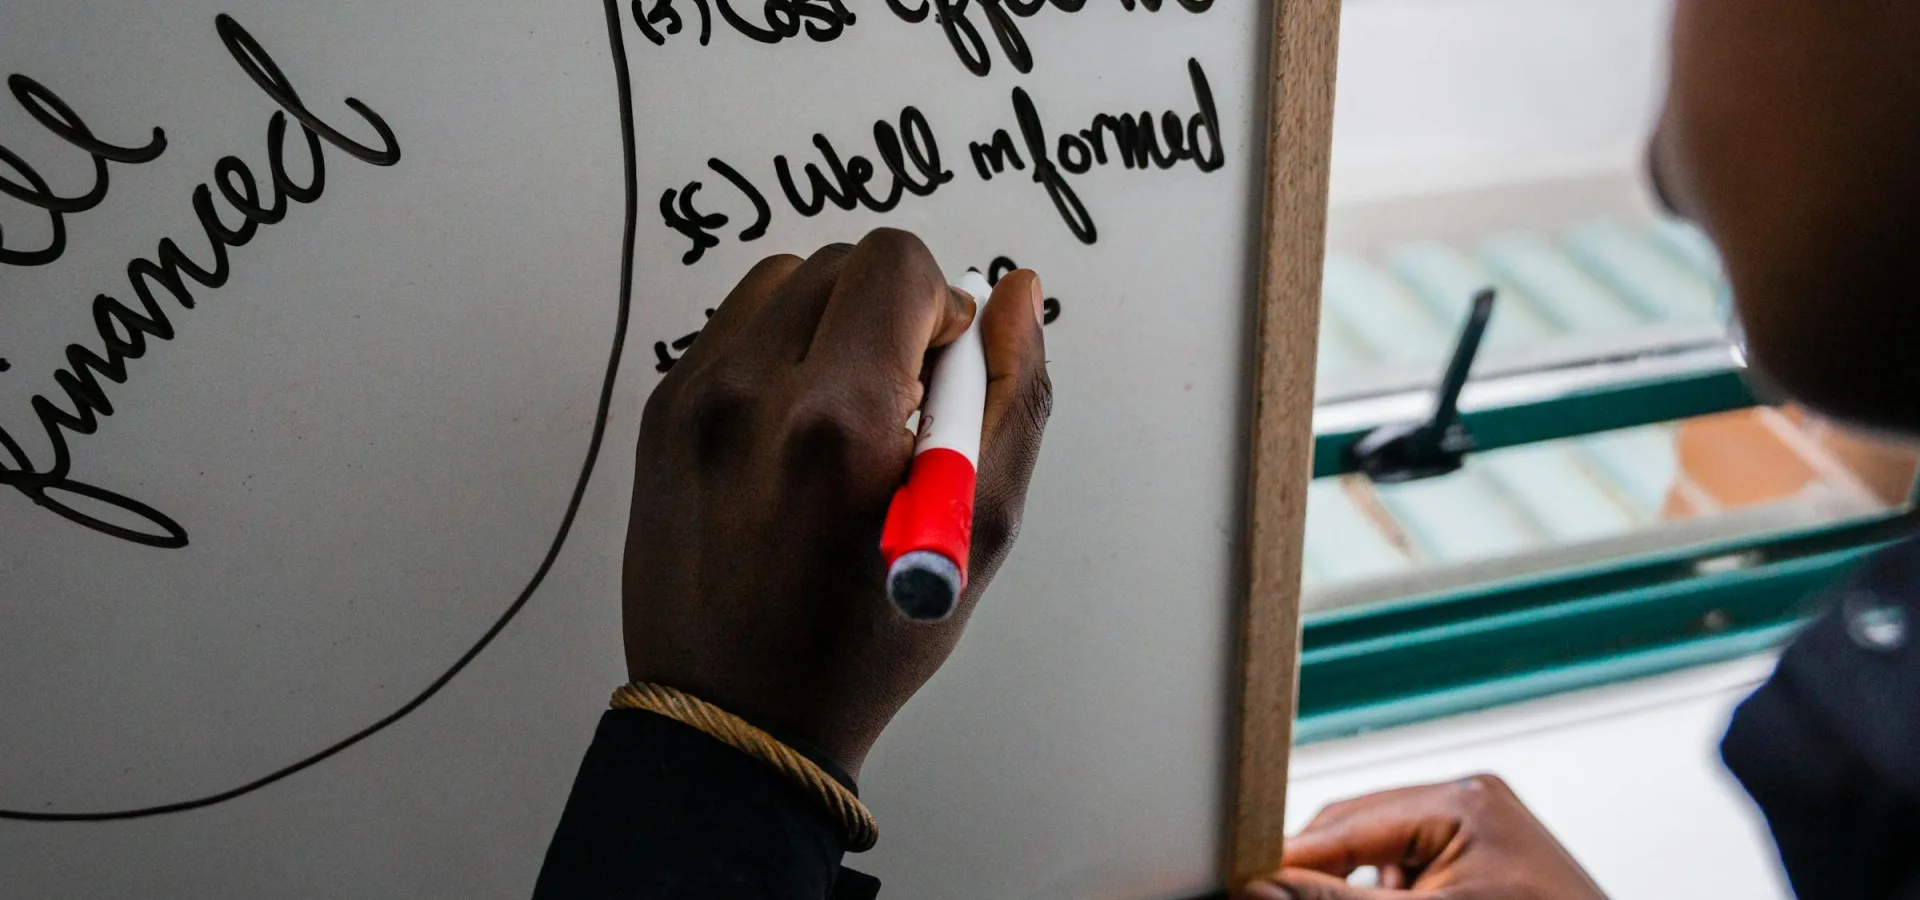 ell
financed
(5) Cost effective
Well informed